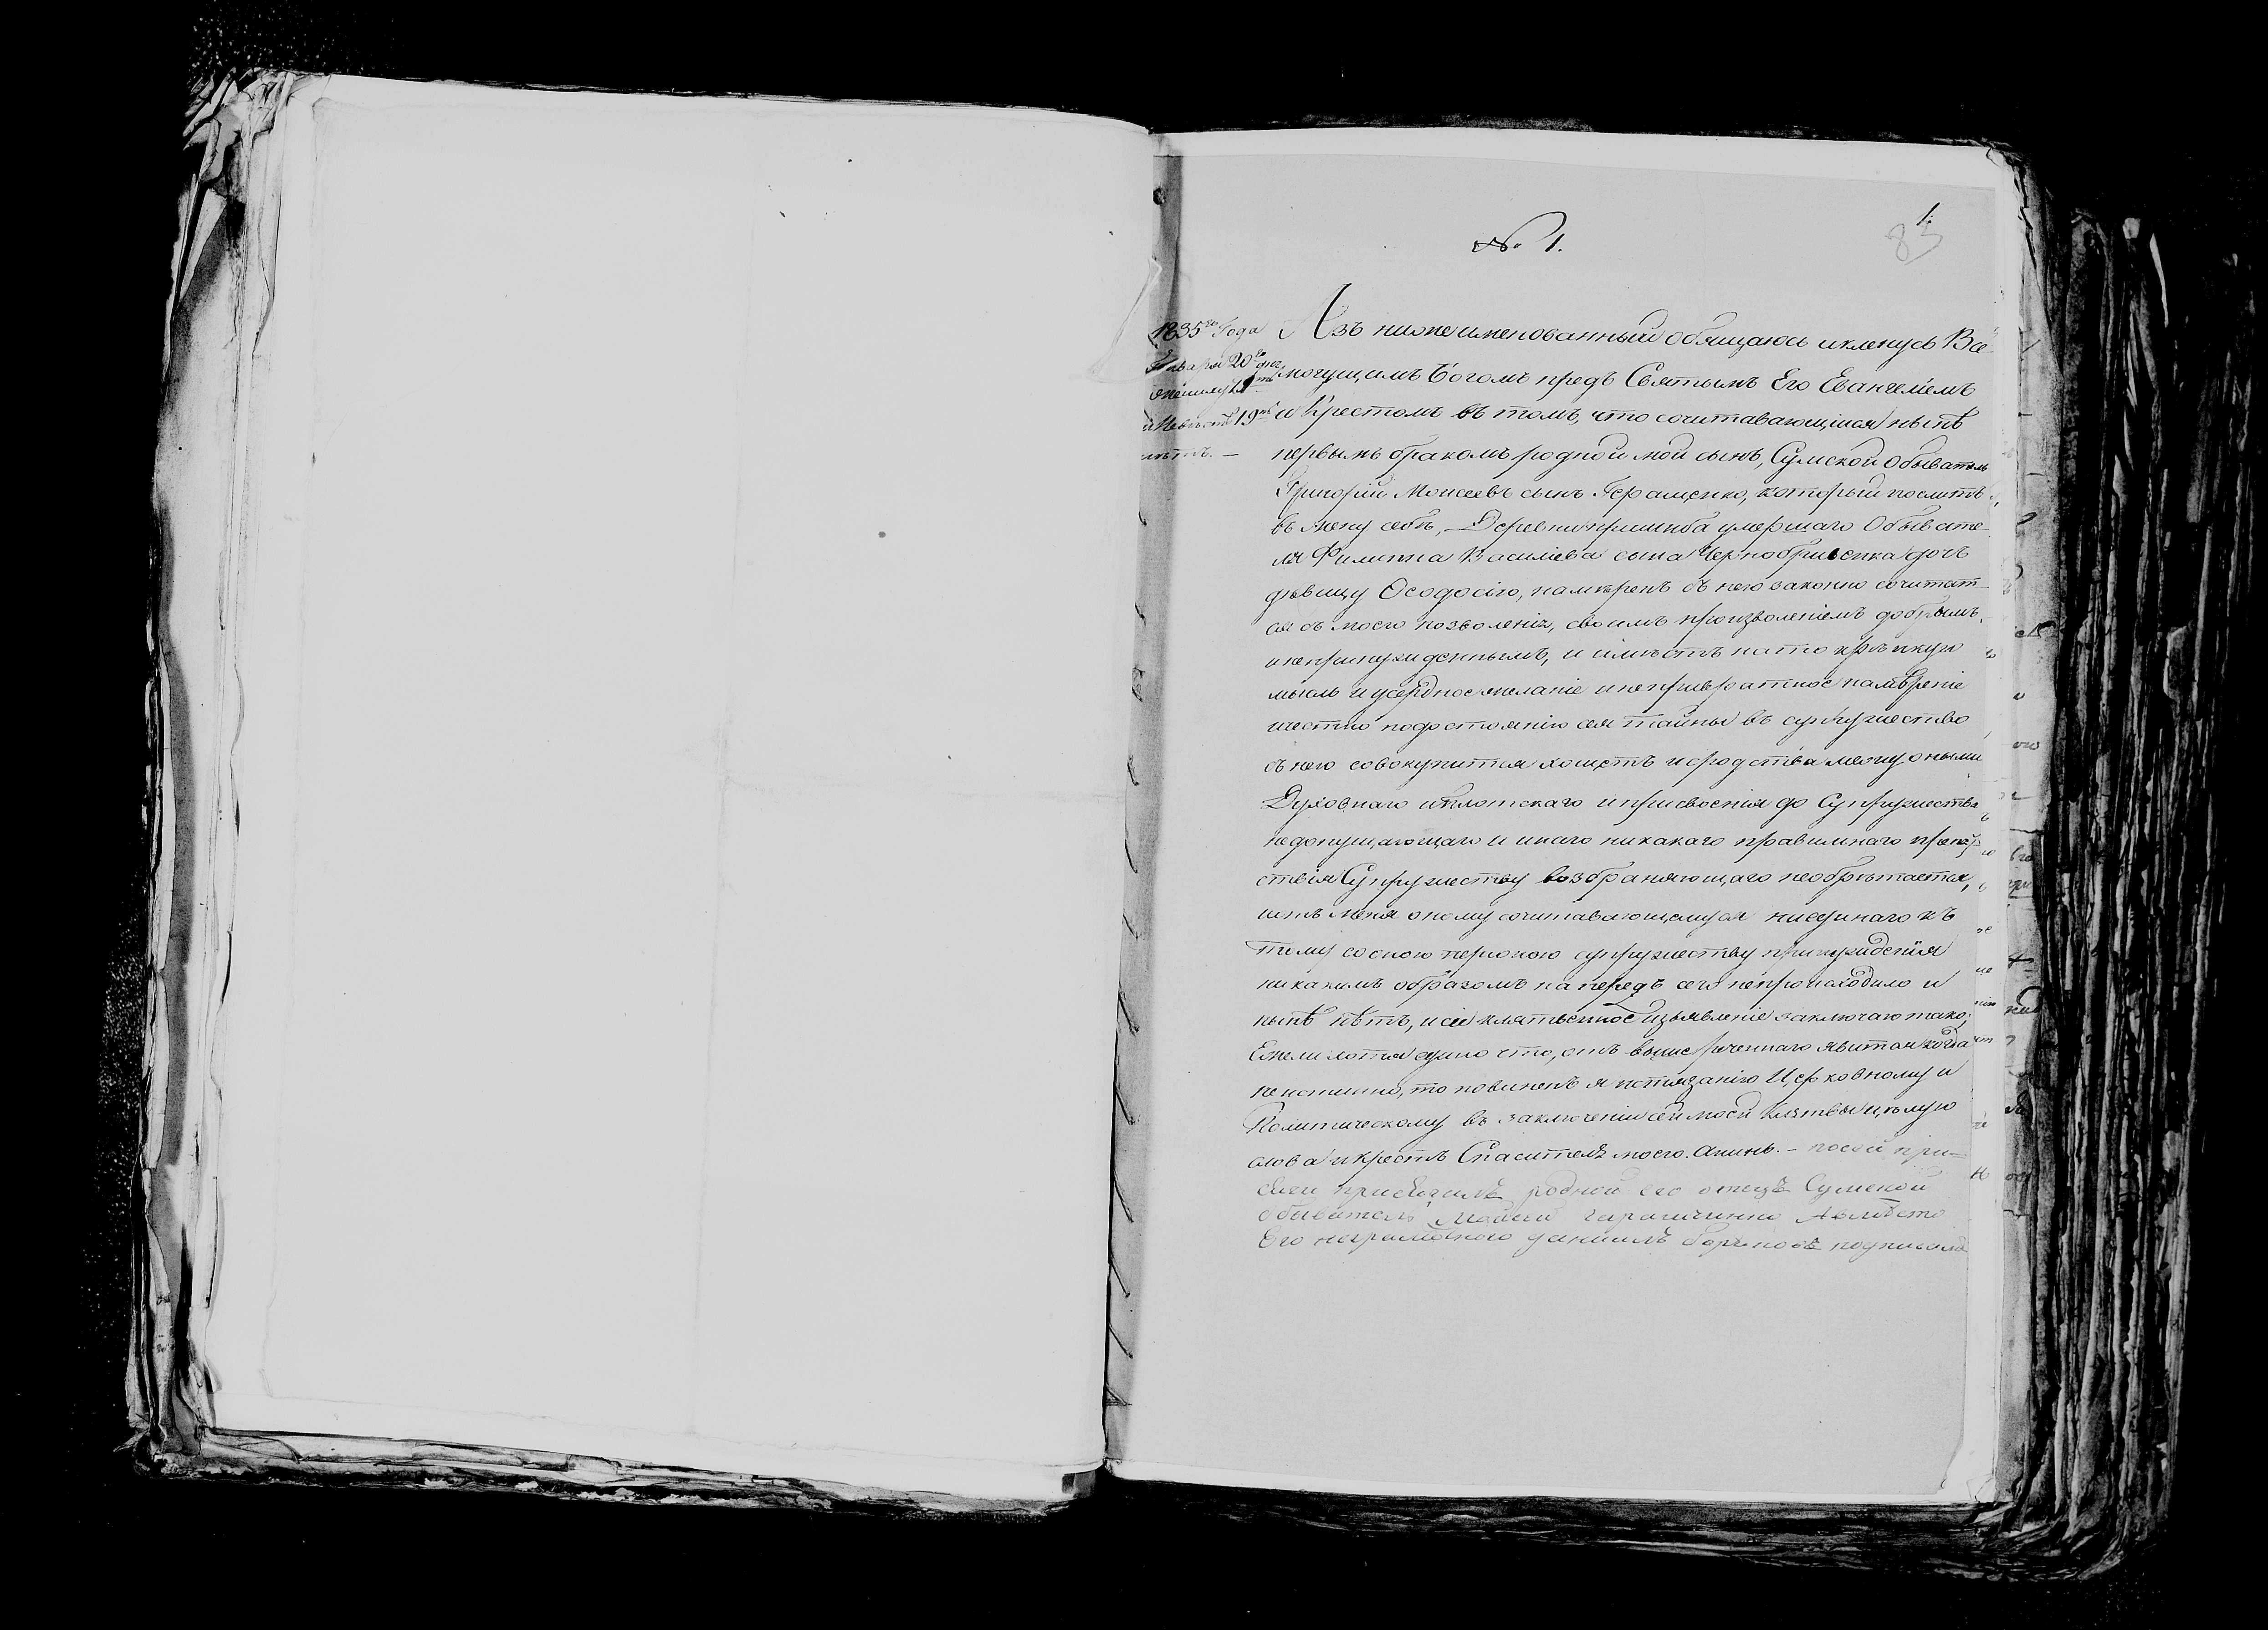 № 1.
1
83
1835го Года
Января 20го дня,
жениху 19ть
и Невѣстѣ 19ть
лѣтъ. —
Азъ нижеименованный обѣщаюсь и клянусь Все-
могущимъ Богомъ предъ Святымъ Его Евангеліемъ
и Крестомъ въ томъ, что сочитавающійся нынѣ
первымъ бракомъ родной мой сынъ, Сумской Обыватель
Григорій Моисеевъ сынъ Геращенко, который поемлетъ
въ жену себѣ, Деревни умершаго Обывате-
ля Филиппа Василіева сына дочь
дѣвицу Ѳеодосію, намѣренъ съ нею законно сочитат-
ся съ моего позволенія, своимъ произволеніемъ добрымъ,
и непринужденнымъ, и имѣетъ на то крѣпкую
мысль и усердное желаніе и непривратное намѣреніе
и честно по достоянію сея тайны въ супружество
съ нею совокупится хощетъ и сродства между оными
Духовнаго и плотскаго и присвоенія до Супружества
недопущающаго и инаго никакаго правилнаго препят-
ствія Супружеству возбраняющаго необрѣтается,
и отъ меня оному сочитавающемуся ниединаго къ
тому со оною персоною супружеству принужденія
никакимъ образомъ напередъ сего непроисходило и
нынѣ нѣтъ, и сіе клятвенное изъявленіе заключаю тако,
Ежели хотя едино что, отъ вышереченнаго явится когда
неистинно, то повиненъ я истязанію Церковному и
Политическому въ заключеніи сей моей Клятвы цѣлую
слова и крестъ Спасителя моего. Аминь. — по сей при-
сяги присягалъ родной его отецъ Сумской
обыватель Моисей Геращенко А вместо
Его неграмотного даниилъ подписалъ